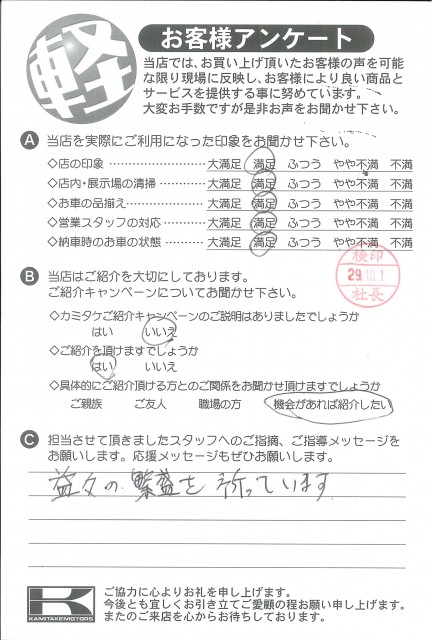 軽
お客様アンケート
当店では、お買い上げ頂いたお客様の声を可能
な限り現場に反映し、お客様により良い商品と
サービスを提供する事に努めています。
大変お手数ですが是非お声をお聞かせ下さい。
A 当店を実際にご利用になった印象をお聞かせ下さい。
◇店の印象 ………………… 大満足 満足 ふつう やや不満 不満
◇店内・展示場の清掃 ……… 大満足 満足 ふつう やや不満 不満
◇お車の品揃え ……………… 大満足 満足 ふつう やや不満 不満
◇営業スタッフの対応 ……… 大満足 満足 ふつう やや不満 不満
◇納車時のお車の状態 ……… 大満足 満足 ふつう やや不満 不満
検印
29.10.1
社長
B 当店はご紹介を大切にしております。
ご紹介キャンペーンについてお聞かせ下さい。
◇カミタケご紹介キャンペーンのご説明はありましたでしょうか
はい いいえ
◇ご紹介を頂けますでしょうか
はい いいえ
◇具体的にご紹介頂ける方とのご関係をお聞かせ頂けますでしょうか
ご親族 ご友人 職場の方 機会があれば紹介したい
C 担当させて頂きましたスタッフへのご指摘、ご指導メッセージを
お願いします。応援メッセージもぜひお願いします。
益々の繁盛を祈っています
K
KAMITAKEMOTORS
ご協力に心よりお礼を申し上げます。
今後とも宜しくお引き立てご愛顧の程お願い申し上げます。
またのご来店を心からお待ちしております。